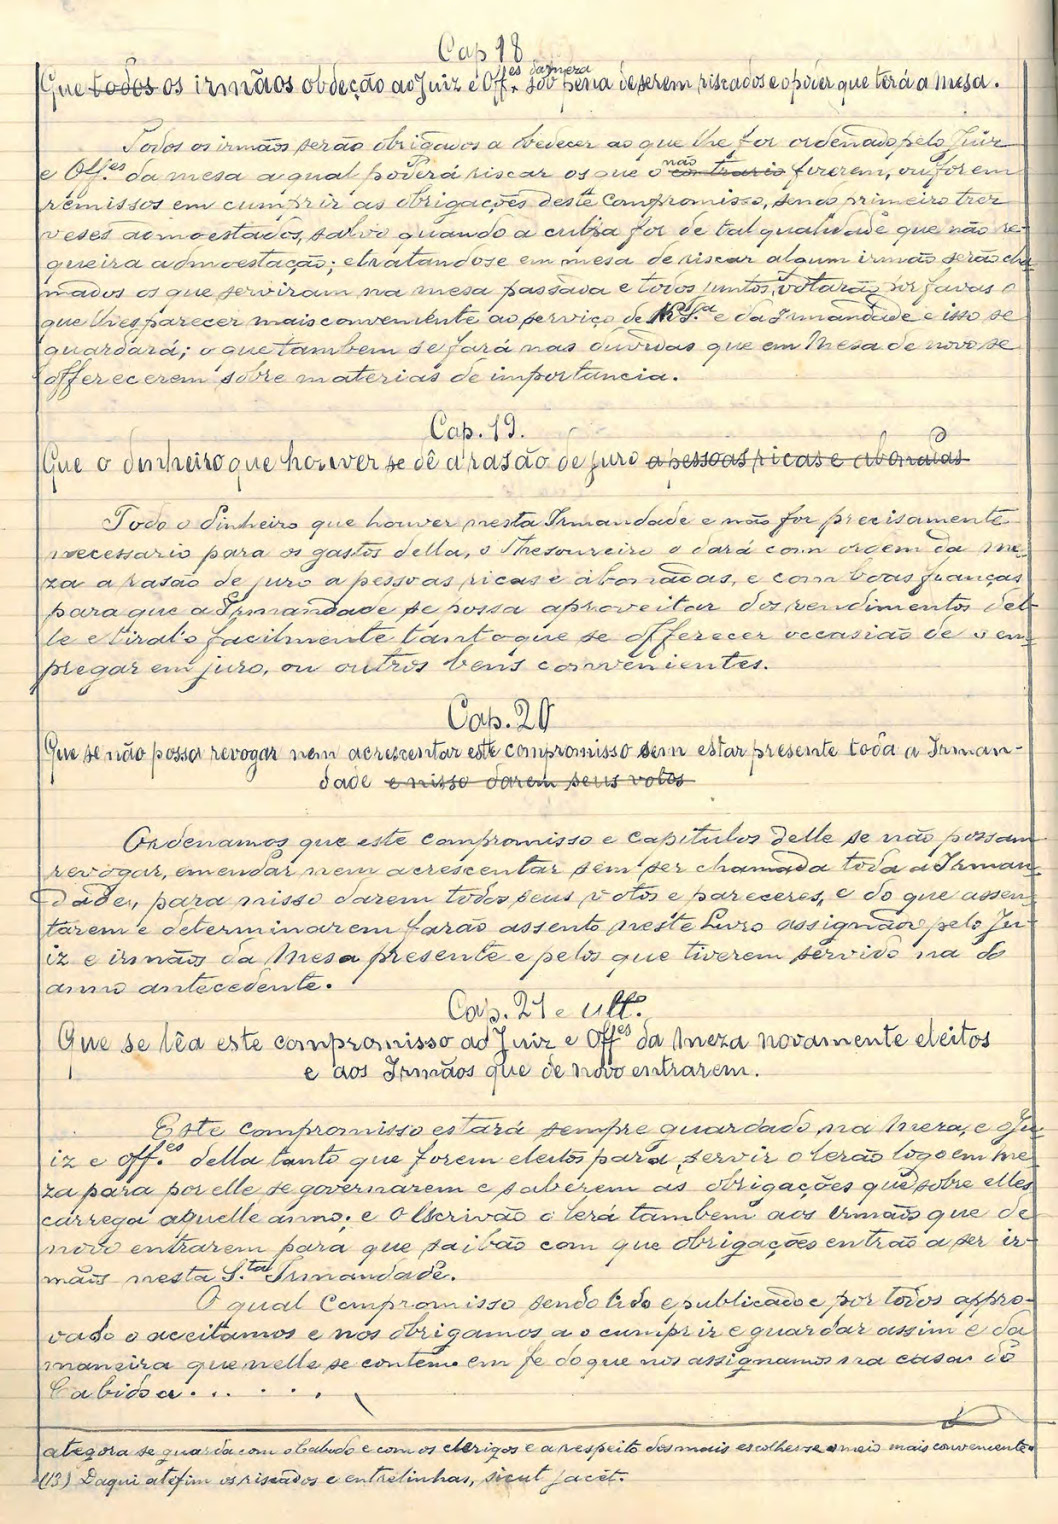 Cap 18
Que todos os irmãos obdeção ao Juiz e Off.es da meza sob pena de serem riscados e o poder que terá a Mesa.
Todos os irmãos serão obrigados a bedecer ao que lhe for ordenado pelo Juiz
e Off.es da mesa a qual poderá riscar os que o não contrario fizerem, ou forem
remissos em cumprir as obrigações deste Compromisso, sendo primeiro trez
veses admoestados, salvo quando a culpa for de tal qualidade que não re-
queira admoestação; e tratandose em mesa de riscar algum irmão serão cha
mados os que serviram na mesa passada e todos juntos, votarão por favas o
que lhes parecer mais conveniente ao serviço de N. S.ra e da Irmandade e isso se
guardará; o que tambem se fará nas duvidas que em Mesa de novo se
offerecerem sobre materias de importancia.
Cap. 19.
Que o dinheiro que houver se dê a rasão de juro a pessoas ricas e abonadas
Todo o dinheiro que houver nesta Irmandade e não for precisamente
necessario para os gastos della, o Thesoureiro o dará com ordem da me-
za a rasão de juro a pessoas ricas e abonadas, e com boas fianças
para que a Irmandade se possa aproveitar dos rendimentos del-
le e tiral-o facilmente tanto que se offerecer occasião de o em-
pregar em juro, ou outros bens convenientes.
Cap. 20
Que se não possa revogar nem acrescentar este compromisso sem estar presente toda a Irman-
dade e nisso darem seus votos
Ordenamos que este compromisso e capitulos delle se não possam
revogar, emendar nem acrescentar sem ser chamada toda a Irman-
dade, para nisso darem todos seus votos e pareceres, e do que assen-
tarem e determinarem farão assento neste Livro assignado pelo Ju-
iz e irmãos da Mesa presente e pelos que tiverem servido na do
anno antecedente.
Cap. 21 e ult.o
Que se lêa este compromisso ao Juiz e Off.es da Meza novamente eleitos
e aos Irmãos que de novo entrarem.
Este compromisso estará sempre guardado na Meza, e o Ju-
iz e off.es della tanto que forem eleitos para servir o lerão logo em me-
za para por elle se governarem e saberem as obrigações que sobre elles
carrega aquelle anno; e o Escrivão o lerá tambem aos Irmãos que de
novo entrarem para que saibão com que obrigações entrão a ser ir-
mãos nesta S.ta Irmandade.
O qual Compromisso sendo lido e publicado e por todos appro-
vado o aceitamos e nos obrigamos a o cumprir e guardar assim e da
maneira que nelle se contem. em fe do que nos assignamos na casa do
Cabido a . . . . . . .
ategora se guarda com o Cabido e com os clerigos e a respeito dos mais escolher-se o meio mais conveniente.
(13) Daqui até fim os riscados e entrelinhas, sicut jacet.